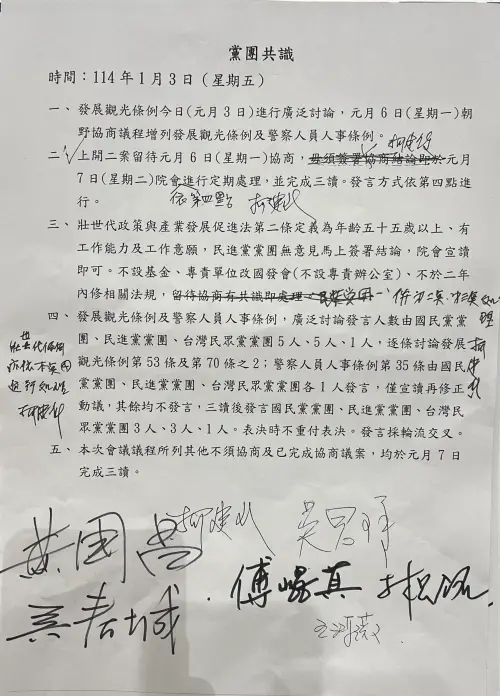 黨團共識
時間：114 年 1 月 3 日 (星期五)
一、發展觀光條例今日(元月 3 日)進行廣泛討論，元月 6 日(星期一)朝
野協商議程增列發展觀光條例及警察人員人事條例。
二、上開二案留待元月 6 日(星期一)協商，毋須簽署協商結論即於元月
7 日(星期二)院會進行定期處理，並完成三讀。發言方式依第四點進
行。
依第四點
三、壯世代政策與產業發展促進法第二條定義為年齡五十五歲以上、有
工作能力及工作意願，民進黨黨團無意見馬上簽署結論，院會宣讀
即可。不設基金、專責單位改國發會(不設專責辦公室)、不於二年
內修相關法規，留待協商有共識即處理
四、發展觀光條例及警察人員人事條例，廣泛討論發言人數由國民黨黨
團、民進黨黨團、台灣民眾黨黨團 5 人、5 人、1 人，逐條討論發展
觀光條例第 53 條及第 70 條之 2；警察人員人事條例第 35 條由國民
黨黨團、民進黨黨團、台灣民眾黨黨團各 1 人發言，僅宣讀再修正
動議，其餘均不發言，三讀後發言國民黨黨團、民進黨黨團、台灣民
眾黨黨團 3 人、3 人、1 人。表決時不重付表決。發言採輪流交叉。
五、本次會議議程所列其他不須協商及已完成協商議案，均於元月 7 日
完成三讀。
黃國昌 柯建銘
傅崐萁